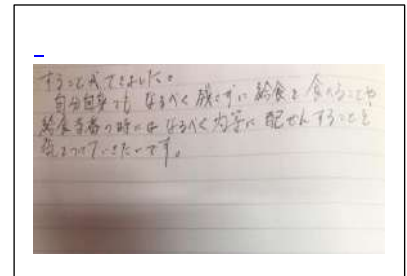 することができました。
自分自身でも なるべく残さずに 給食を 食べることや
給食当番の時には なるべく均等に 配ぜんすることを
気をつけていきたいです。